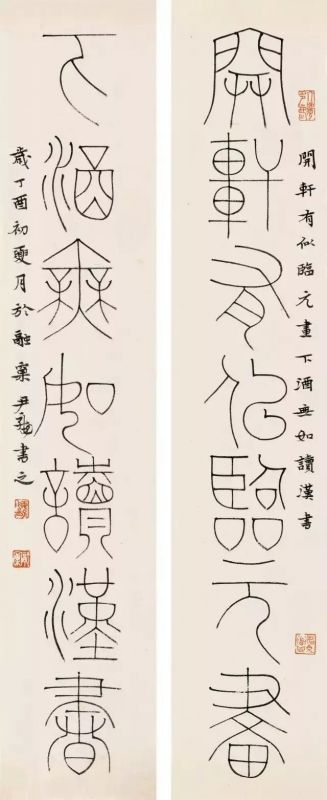 開軒有似臨元畫下酒無如讀漢書
開軒有似臨元畫
下酒無如讀漢書
歲丁酉初夏月於融窠尹書之